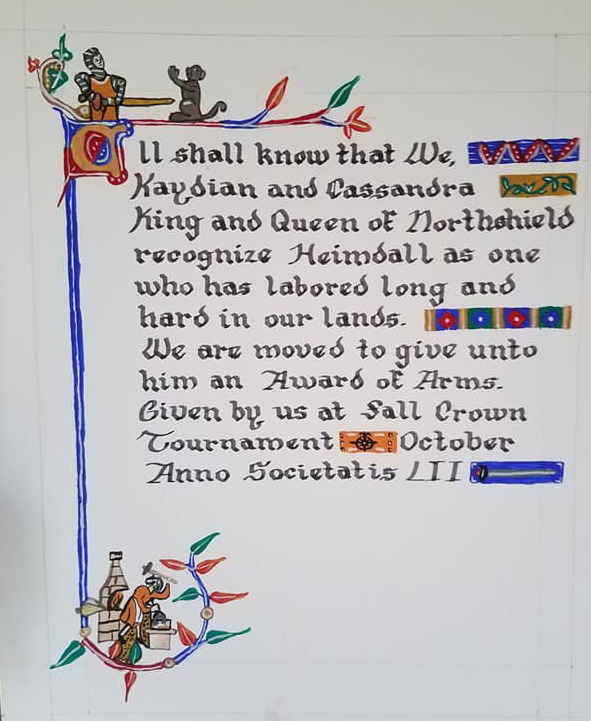 All shall know that We,
Kaydian and Cassandra
King and Queen of Northshield
recognize Heimdall as one
who has labored long and
hard in our lands.
We are moved to give unto
him an Award of Arms.
Given by us at Fall Crown
Tournament October
Anno Societatis LII